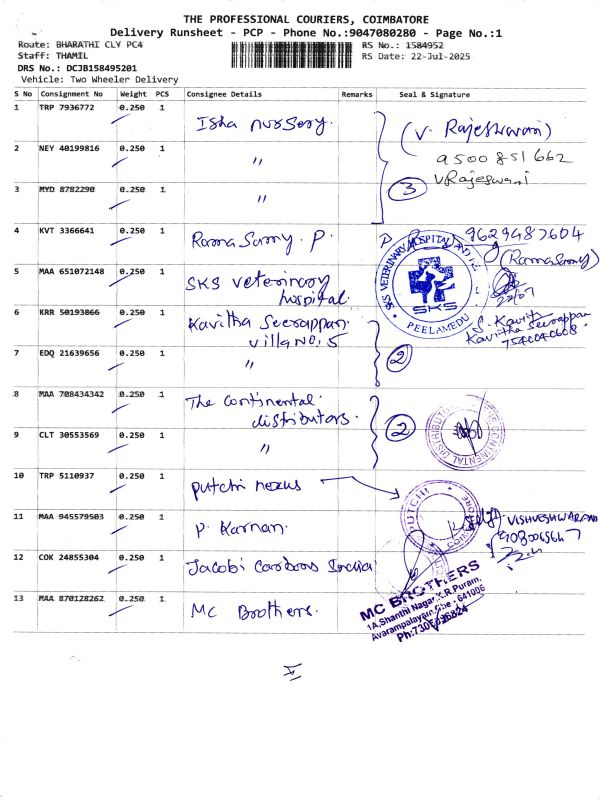 THE PROFESSIONAL COURIERS, COIMBATORE
Delivery Runsheet - PCP - Phone No.:9047080280 - Page No.:1
Route: BHARATHI CLY PC4 RS No.: 1584952
Staff: THAMIL RS Date: 22-Jul-2025
DRS No.: DCJB158495201
Vehicle: Two Wheeler Delivery
S No Consignment No Weight PCS Consignee Details Remarks Seal & Signature
1 TRP 7936772 0.250 1 Isha nursery. (V. Rajeshwari)
2 NEY 40199816 0.250 1 " 9500851662
V Rajeswari
3 MYD 8782290 0.250 1 " 3
4 KVT 3366641 0.250 1 Rama Samy. P. 9629487604
(Rama Samy)
5 MAA 651072148 0.250 1 SKS veterinary hospital.
SKS VETERINARY HOSPITAL
SKS
PEELAMEDU
22/07
6 KRR 50193066 0.250 1 Kavitha Seerappan
villa No. 5
S. Kavith
Kavitha Seerappan
7 EDQ 21639656 0.250 1 " 2
8 MAA 708434342 0.250 1 The continental
distributors.
2
CONTINENTAL DISTRIBUTORS
9 CLT 30553569 0.250 1 "
10 TRP 5110937 0.250 1 putchi nexus
PUTCHI
11 MAA 945579503 0.250 1 P. Karnan. VISHVESHWARAN
12 COK 24855304 0.250 1 Jacobi Carbons India
13 MAA 870128262 0.250 1 MC Brothers.
MC BROTHERS
1A, Shanthi Nagar, K.R.Puram,
Avarampalayam, Cbe - 641006